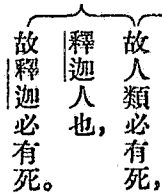 故人類必有死，
釋迦人也，
故釋迦必有死。